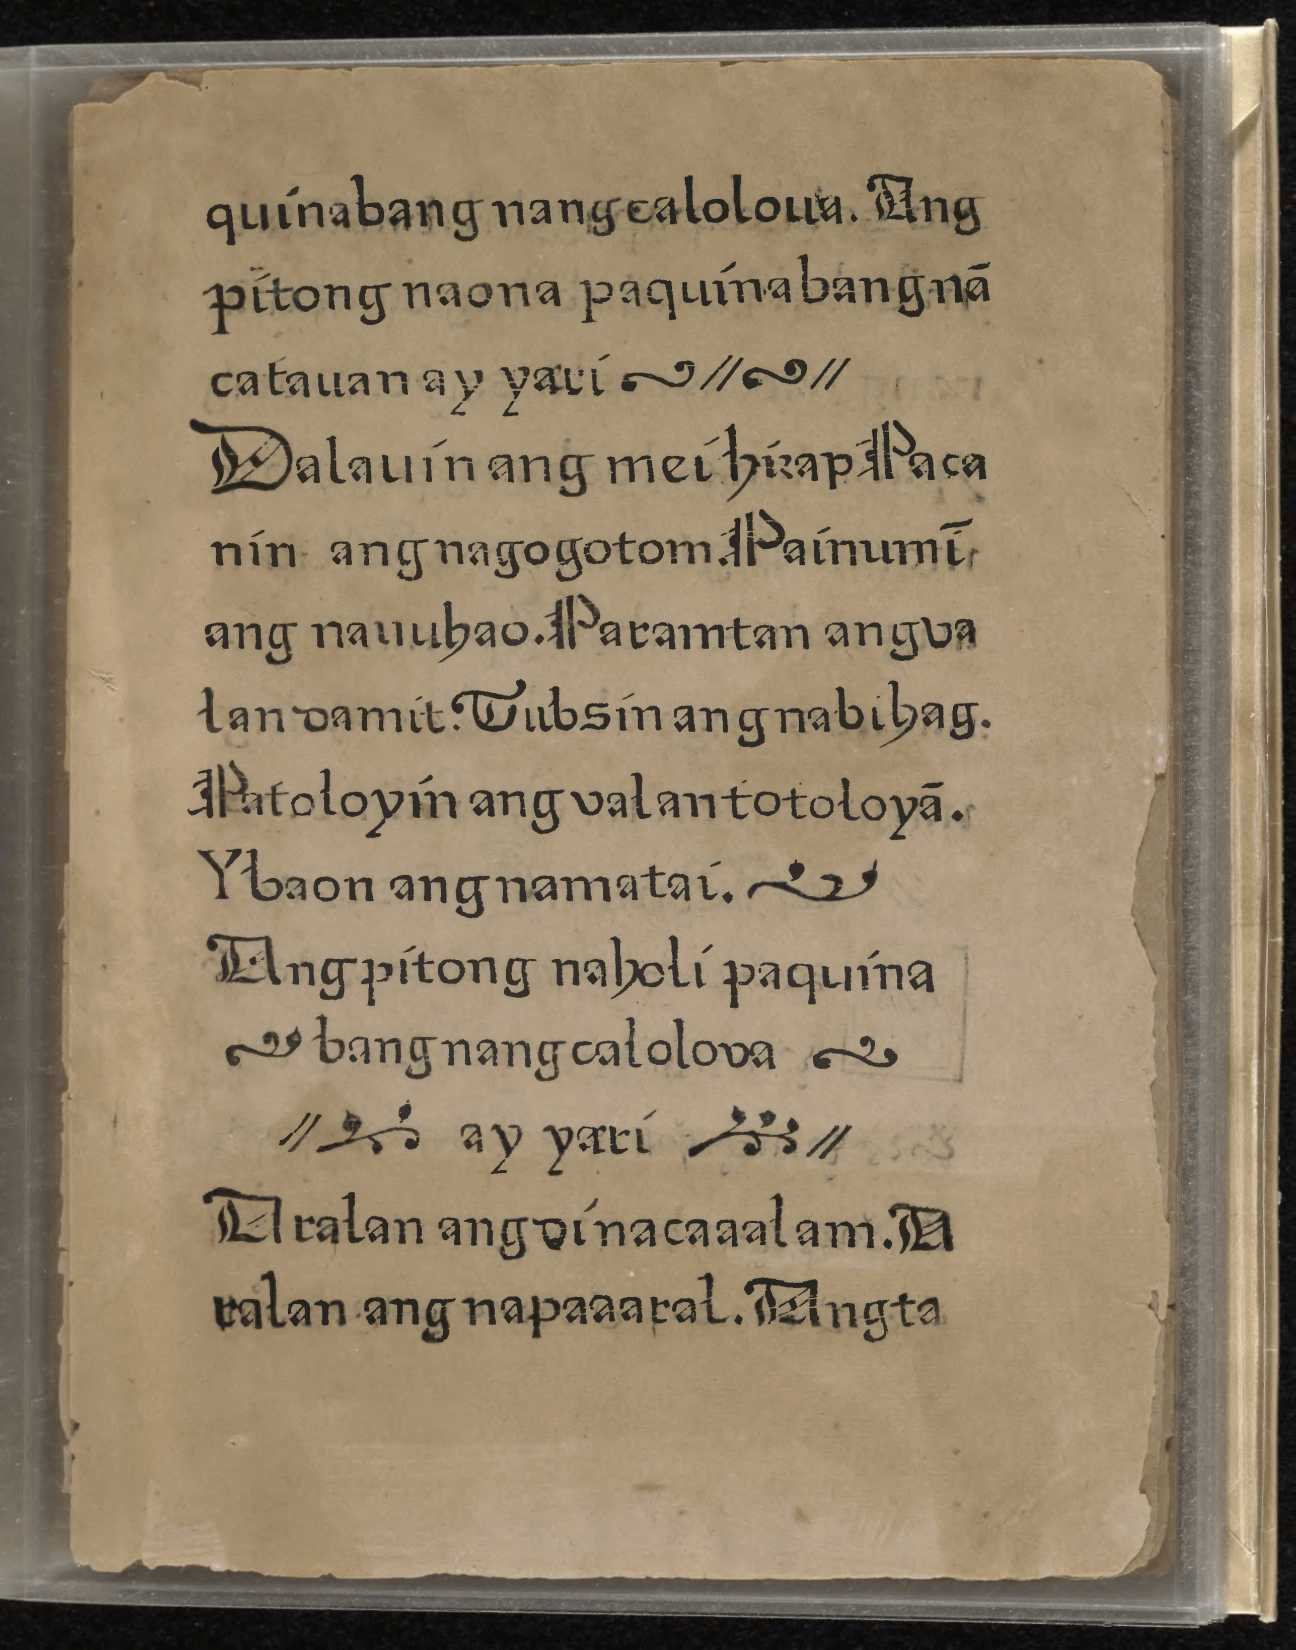 quinabang nang caloloua. Ang
pitong naona paquinabang nā
catauan ay yari
Dalauin ang mei hirap. Paca
nin ang nagogotom. Painumī
ang nauuhao. Paramtan ang va
lan damit. Tubsin ang nabihag.
Patoloyin ang valan totoloyā.
Ybaon ang namatai.
Ang pitong naholi paquina
bang nang calolova
ay yari
Aralan ang di nacaaalam. A
ralan ang napaaaral. Ang ta